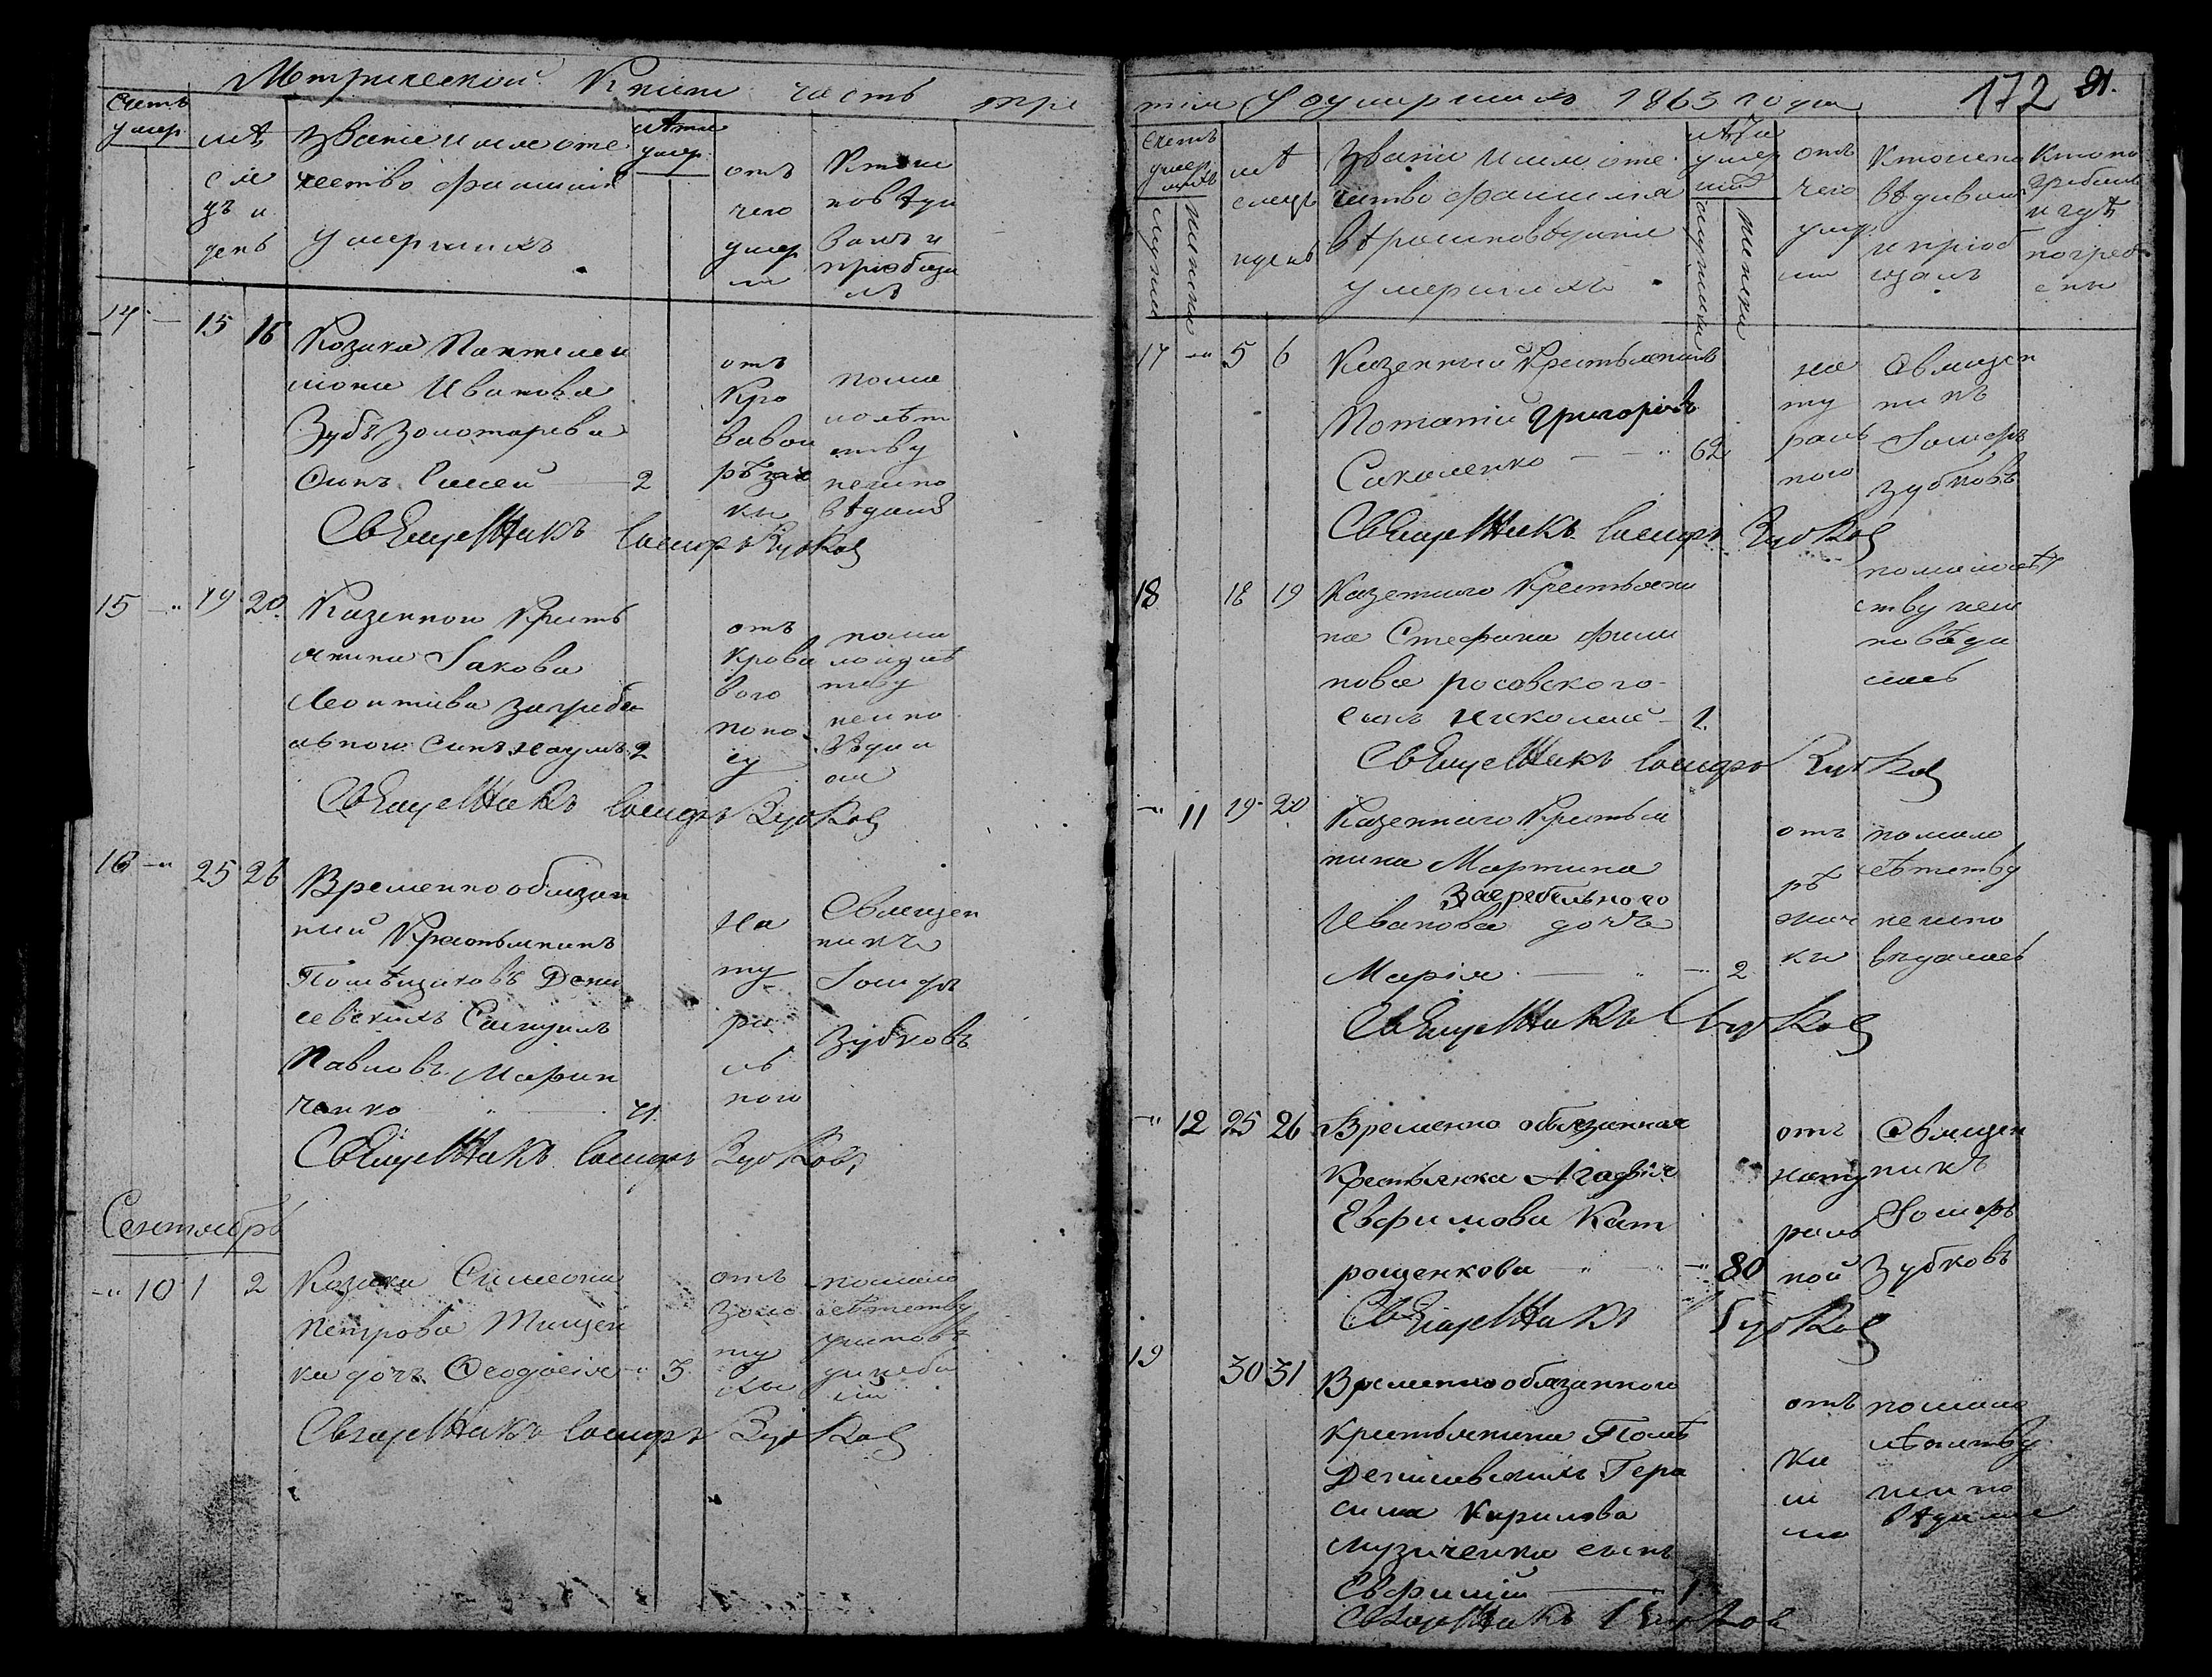 Метрической Книги часть тре
Счетъ
умер
мѣ
сяцъ и
день
Званіе имя оте
чество фамилія
умершихъ
лѣта
умер
отъ
чего
умер
ли
Кто ис
повѣды
валъ и
пріобща
лъ
14 15 16
Козака Пантелеи
мона Иванова
Зубъ Золотарева
Сынъ 2
отъ
кро
вавой
рѣзач
ки
пома
лолѣт
ству
неиспо
вѣданъ
Священникъ Іосифъ Зубков
15 19 20
Казенного Кресть
янина Іакова
Леонтіева Загребе
льного Сынъ Наумъ 2
отъ
крова
вого
поно
су
пома
лолѣт
ству
неиспо
вѣдан
Священникъ Іосифъ Зубков
16 25 26
Временнообязан
ный Крестьянинъ
Помѣщиковъ Дени
севскихъ Самуилъ
Павловъ Марин
ченко 71
На
ту
ра
ль
ного
Священ
никъ
Іосифъ
Зубковъ
Священникъ Іосифъ Зубковъ
Сентябрь
10 1 2
Козака Симеона
Петрова Тищен
ка дочь Ѳеодосія 3
отъ
золо
ту
хи
помало
лѣтству
Священникъ Іосифъ Зубков
тія о умершихъ 1863 года 172
Счетъ
умер
шихъ
мужска
женска
мѣ
сяцъ
и день
Званіе имя оте
чество фамилія
вѣроисповѣданіе
умершихъ
лѣта
умер
шій
мужеска
женска
отъ
чего
умер
ли
Кто испо
вѣдывалъ
и пріоб
щалъ
Кто по
гребалъ
и гдѣ
погреб
ены
17 5 6
Казенный Крестьянинъ
Потапій Григоріевъ
Сакаленко 62
на
ту
раль
ного
Священ
никъ
Іосифъ
Зубковъ
Священникъ Іосифъ Зубков
18 18 19
Казенного Крестьяни
на Стефана Фили
пова росовского
сынъ Николай 1
помалолѣт
ству неис
повѣда
лась
Священникъ Іосифъ Зубков
11 19 20
Казенного Крестья
нина Мартина
Загребельного
Иванова дочь
Марія 2
отъ
рѣ
зач
ки
помало
лѣтству
неиспо
вѣдалась
Священникъ Зубков
12 25 26
Временно обязанная
Крестьянка Агафія
Евфимова Кат
рощенкова 80
отъ
нату
раль
ной
Священ
никъ
Іосифъ
Зубковъ
Священникъ Зубков
19 30 31
Временнообязанного
крестьянина Помѣ
Денисевскихъ Гера
сима Кирилова
Музиченка сынъ
Евфимій 1
отъ
ка
ш
ля
помало
лѣтству
неиспо
вѣданъ
Священникъ Зубков